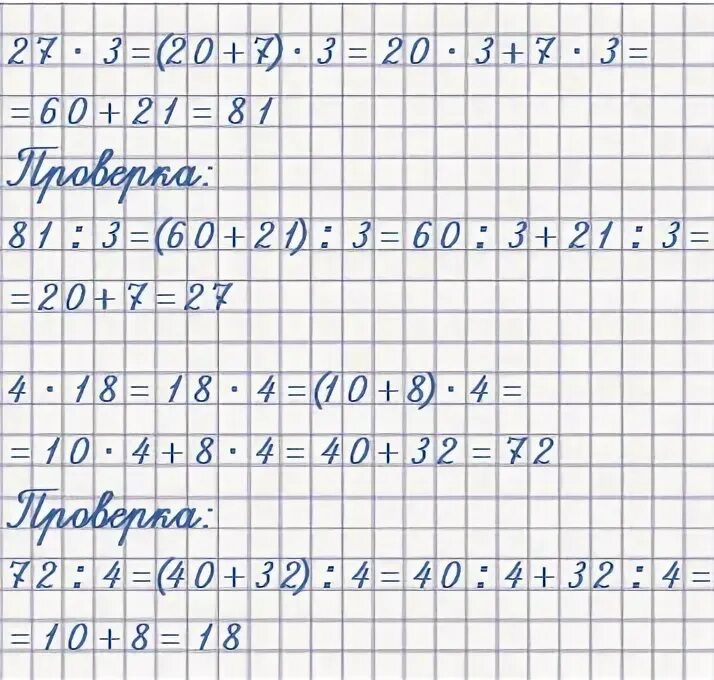 27 · 3 = (20 + 7) · 3 = 20 · 3 + 7 · 3 =
= 60 + 21 = 81
Проверка:
81 : 3 = (60 + 21) : 3 = 60 : 3 + 21 : 3 =
= 20 + 7 = 27
4 · 18 = 18 · 4 = (10 + 8) · 4 =
= 10 · 4 + 8 · 4 = 40 + 32 = 72
Проверка:
72 : 4 = (40 + 32) : 4 = 40 : 4 + 32 : 4 =
= 10 + 8 = 18